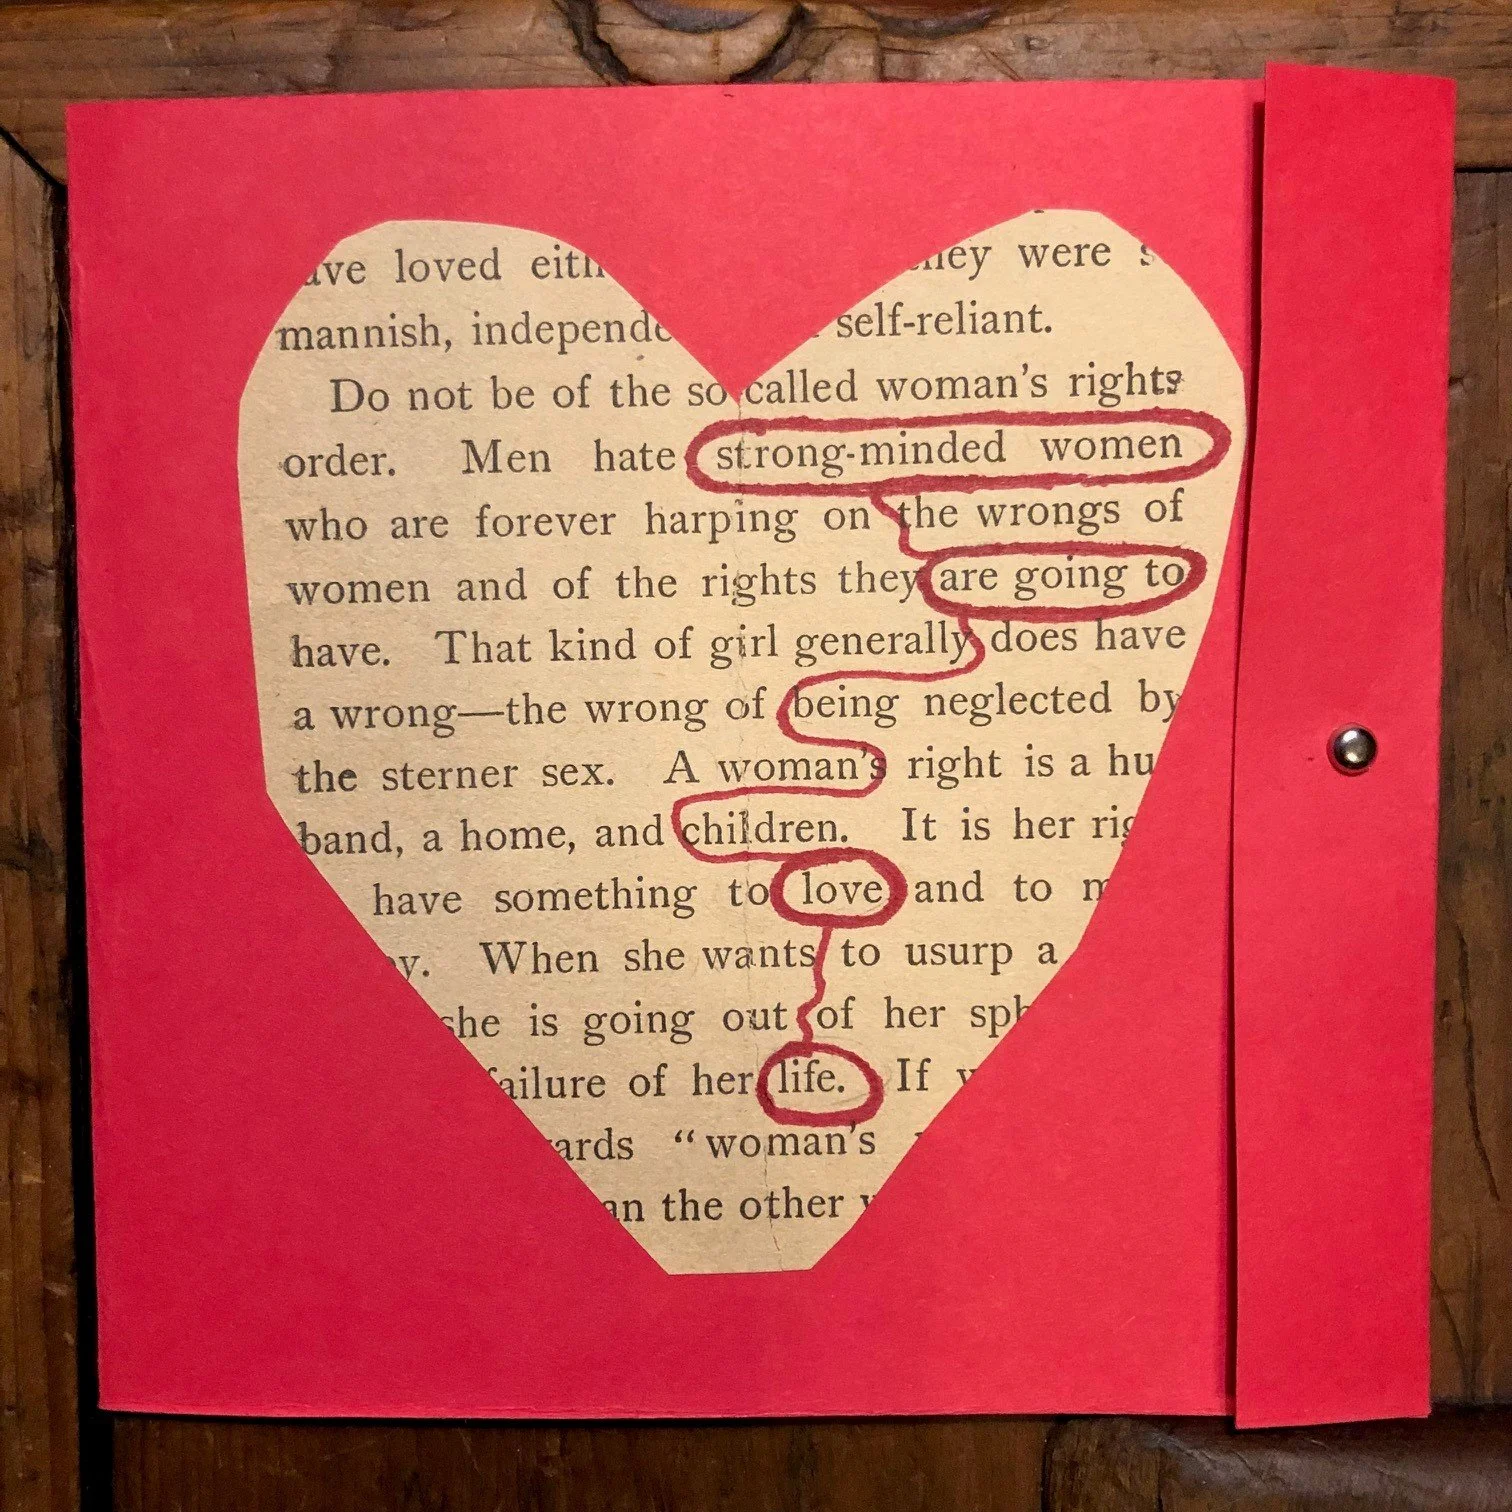 loved
mannish, self-reliant.
Do not be of the so called woman's rights
order. Men hate strong-minded women
who are forever harping on the wrongs of
women and of the rights they are going to
have. That kind of girl generally does have
a wrong—the wrong of being neglected by
the sterner sex. A woman's right is a hu
band, a home, and children. It is her
have something to love and to
When she wants to usurp a
she is going out of her
failure of her life. If
"woman's
an the other
were